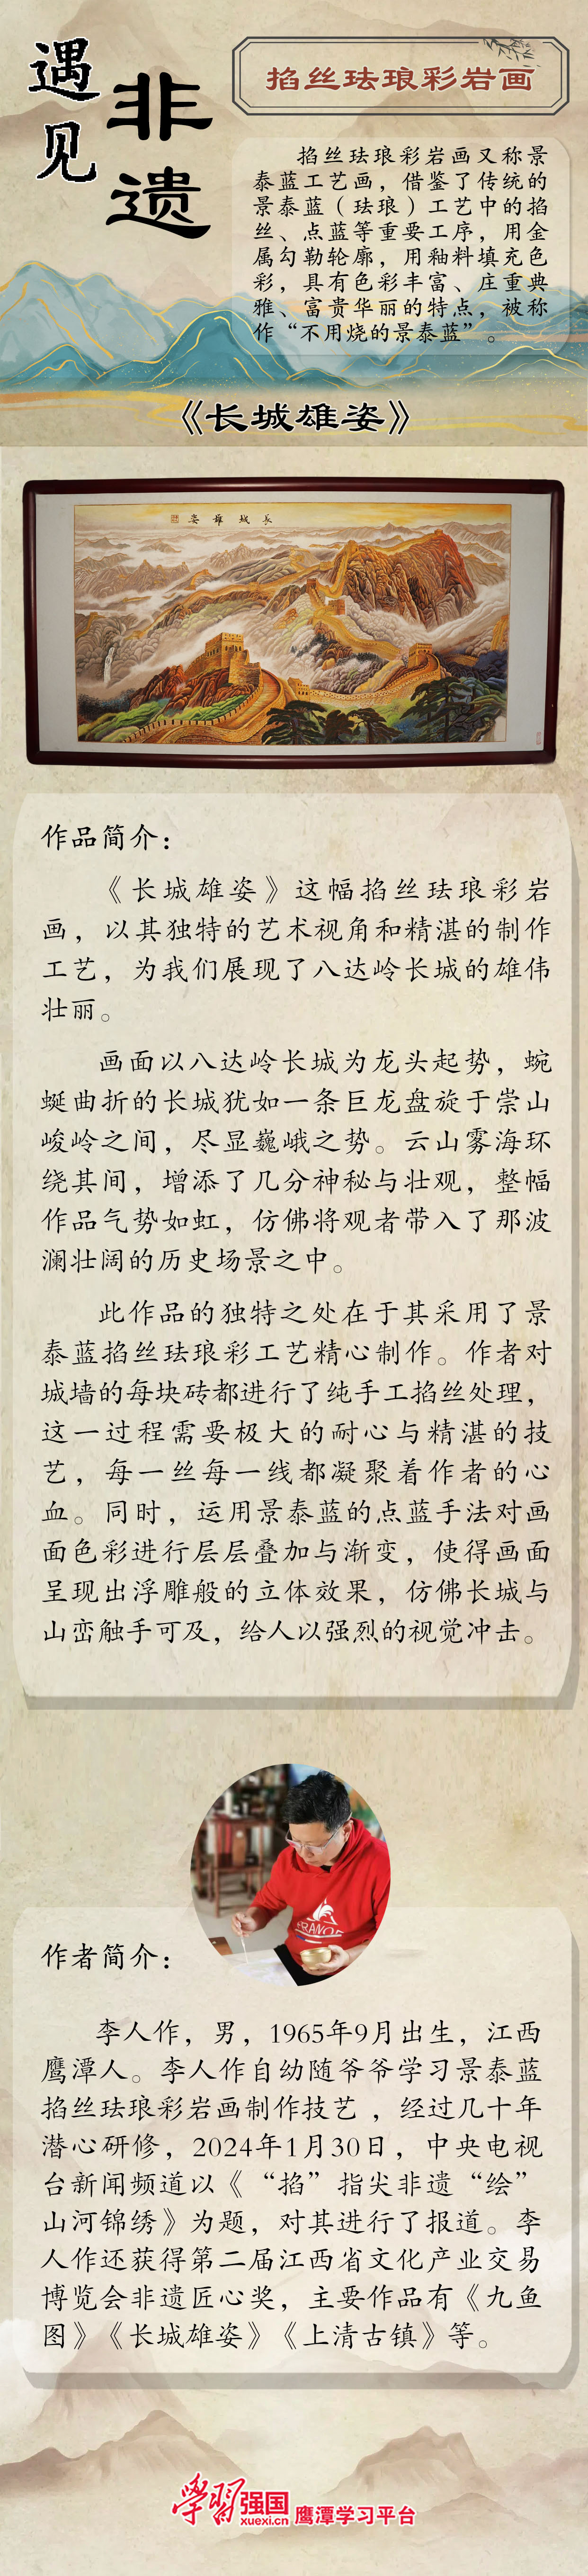 遇见
非遗
掐丝珐琅彩岩画
掐丝珐琅彩岩画又称景
泰蓝工艺画，借鉴了传统的
景泰蓝（珐琅）工艺中的掐
丝、点蓝等重要工序，用金
属勾勒轮廓，用釉料填充色
彩，具有色彩丰富、庄重典
雅、富贵华丽的特点，被称
作“不用烧的景泰蓝”。
《长城雄姿》
姿雄城长
作品简介：
《长城雄姿》这幅掐丝珐琅彩岩
画，以其独特的艺术视角和精湛的制作
工艺，为我们展现了八达岭长城的雄伟
壮丽。
画面以八达岭长城为龙头起势，蜿
蜒曲折的长城犹如一条巨龙盘旋于崇山
峻岭之间，尽显巍峨之势。云山雾海环
绕其间，增添了几分神秘与壮观，整幅
作品气势如虹，仿佛将观者带入了那波
澜壮阔的历史场景之中。
此作品的独特之处在于其采用了景
泰蓝掐丝珐琅彩工艺精心制作。作者对
城墙的每块砖都进行了纯手工掐丝处理，
这一过程需要极大的耐心与精湛的技
艺，每一丝每一线都凝聚着作者的心
血。同时，运用景泰蓝的点蓝手法对画
面色彩进行层层叠加与渐变，使得画面
呈现出浮雕般的立体效果，仿佛长城与
山峦触手可及，给人以强烈的视觉冲击。
作者简介：
李人作，男，1965年9月出生，江西
鹰潭人。李人作自幼随爷爷学习景泰蓝
掐丝珐琅彩岩画制作技艺，经过几十年
潜心研修，2024年1月30日，中央电视
台新闻频道以《“掐”指尖非遗“绘”
山河锦绣》为题，对其进行了报道。李
人作还获得第二届江西省文化产业交易
博览会非遗匠心奖，主要作品有《九鱼
图》《长城雄姿》《上清古镇》等。
学习强国
xuexi.cn
鹰潭学习平台